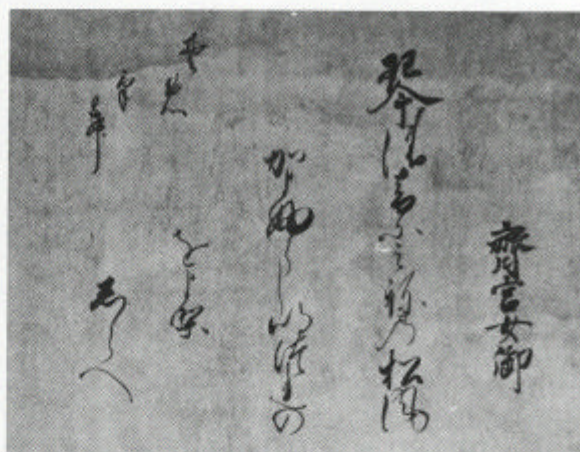 齋宮女御
琴の音にみねの松風
かよふらしいつれの
をより
しらへ
そめ
け
む